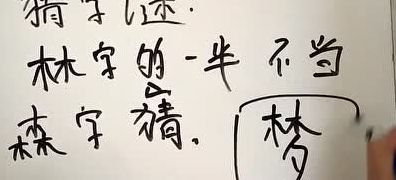 猜字谜.
林字的一半不当
森字猜.
梦